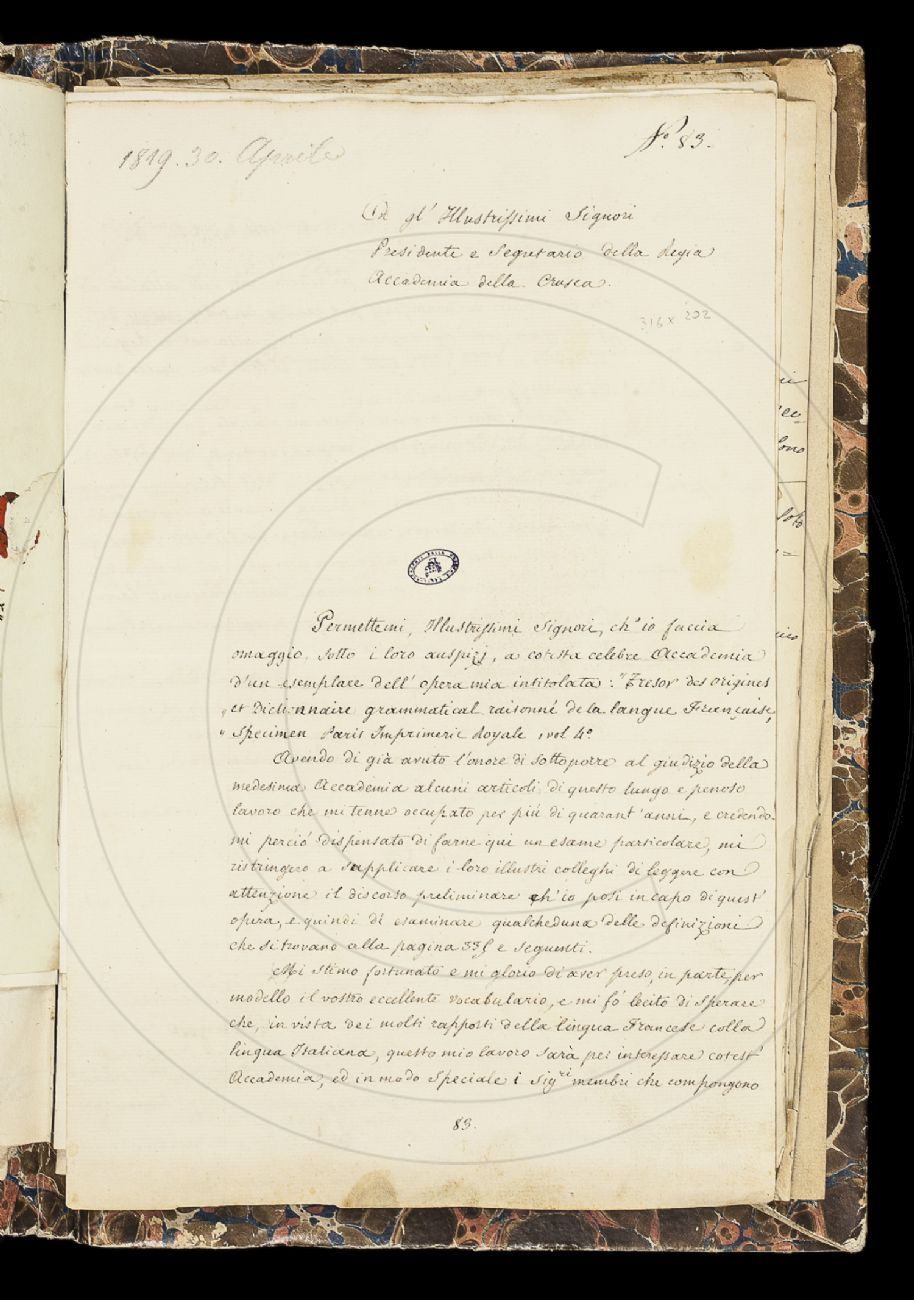 1819. 30. Aprile
N.° 83.
A gl' Illustrissimi Signori
Presidente e Segretario della Regia
Accademia della Crusca.
316 x 202
Permettemi, Illustrissimi Signori, ch' io faccia
omaggio, sotto i loro auspizj, a cotesta celebre Accademia
d'un esemplare dell' opera mia intitolata: "Tresor des origines
„ et Dictionnaire grammatical raisonné de la langue Française,
„ Specimen Paris Imprimerie Royale, 1 vol 4°.
Avendo di già avuto l'onore di sottoporre al giudizio della
medesima Accademia alcuni articoli di questo lungo e penoso
lavoro che mi tenne occupato per più di quarant' anni, e credendo-
mi perciò dispensato di farne qui un esame particolare, mi
ristringero a supplicare i loro illustri colleghi di leggere con
attenzione il discorso preliminare ch' io posi in capo di quest'
opera, e quindi di esaminare qualcheduna delle definizioni
che si trovano alla pagina 335 e seguenti.
Mi stimo fortunato e mi glorio di aver preso, in parte, per
modello il vostro eccellente vocabulario, e mi fò lecito di sperare
che, in vista dei molti rapporti della lingua Francese colla
lingua Italiana, questo mio lavoro sarà per interessare cotest'
Accademia, ed in modo speciale i Sig.ri membri che compongono
83.